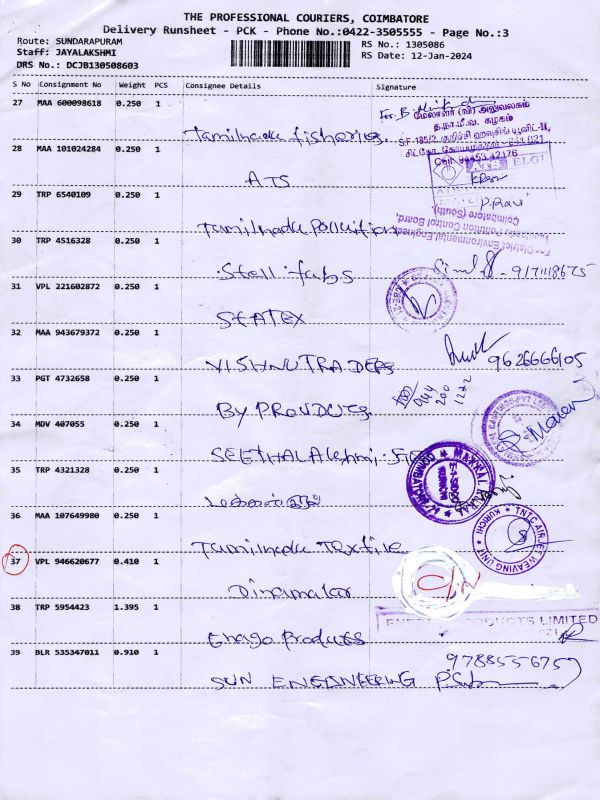 THE PROFESSIONAL COURIERS, COIMBATORE
Delivery Runsheet - PCK - Phone No.:0422-3505555 - Page No.:3
Route: SUNDARAPURAM
Staff: JAYALAKSHMI
DRS No.: DCJB130508603
RS No.: 1305086
RS Date: 12-Jan-2024
S No Consignment No Weight PCS Consignee Details Signature
27 MAA 600098618 0.250 1
Tamilnadu fisheries
மேலாளர் (வி) அலுவலகம்
28 MAA 101024284 0.250 1
ATS
ELGI
29 TRP 6540109 0.250 1
Tamilnadu Pollution
P. Ravi
For District Environmental Engineer
Tamilnadu Pollution Control Board,
Coimbatore (South).
30 TRP 4516328 0.250 1
Stell fabs
9171118675
31 VPL 221602872 0.250 1
STATEX
32 MAA 943679372 0.250 1
VISHNU TRADERS
9626666105
33 PGT 4732658 0.250 1
BY PRONDUCTS
044
200
1222
34 MDV 407055 0.250 1
SEETHALAkshmi
35 TRP 4321328 0.250 1
மக்கள் குரல்
MAKKAL KURAL
COIMBATORE
36 MAA 107649980 0.250 1
Tamilnadu Textile
TNTC AIRJET WEAVING UNIT
KURICHI
37 VPL 946620677 0.410 1
Dinamalar
38 TRP 5954423 1.395 1
Enago Products
PRODUCTS LIMITED
39 BLR 535347011 0.910 1
SUN ENGENEERING
9788555675